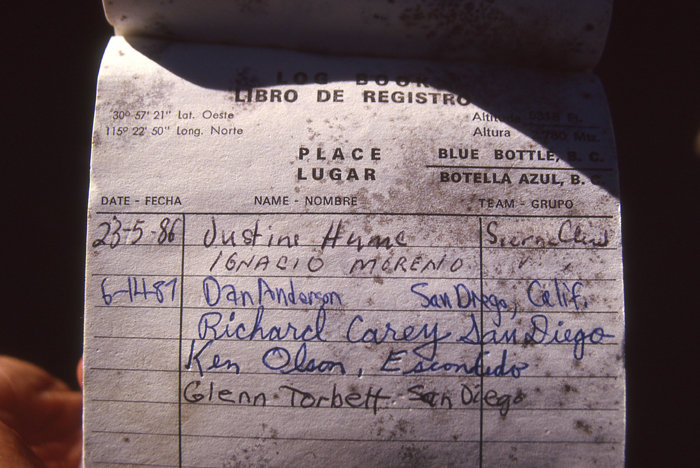 LOG BOOK
LIBRO DE REGISTRO
30º 57' 21" Lat. Oeste
115º 22' 50" Long. Norte
Altitud
Altura
PLACE
LUGAR
BLUE BOTTLE, B. C.
BOTELLA AZUL, B.
DATE - FECHA NAME - NOMBRE TEAM - GRUPO
23-5-86 Justine Hume Sierra Club
IGNACIO MORENO " "
6-14-87 Dan Anderson San Diego, Calif.
Richard Carey San Diego
Ken Olson, Escondido
Glenn Torbett San Diego